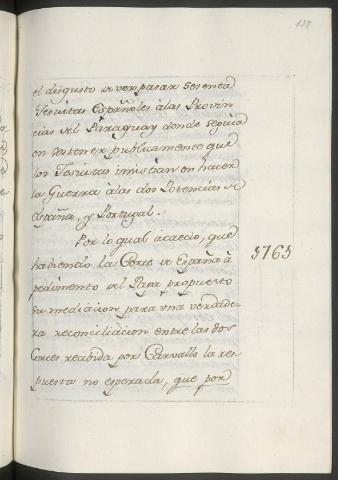 137
el disgusto de ver pasar sesenta
Jesuitas Españoles à las Provin
cias del Paraguay donde seguia
en sostener publicamente que
los Jesuitas insistian en hacer
la Guerra à las dos Potencias de
España, y Portugal.
Por lo qual acaeciò, que
habiendo la Corte de España à
pedimento del Papa propuesto
su mediacion para una verdade
ra reconciliacion entre las dos
Cortes recibida por Carvallo la res
puesta no esperada, que por
1763